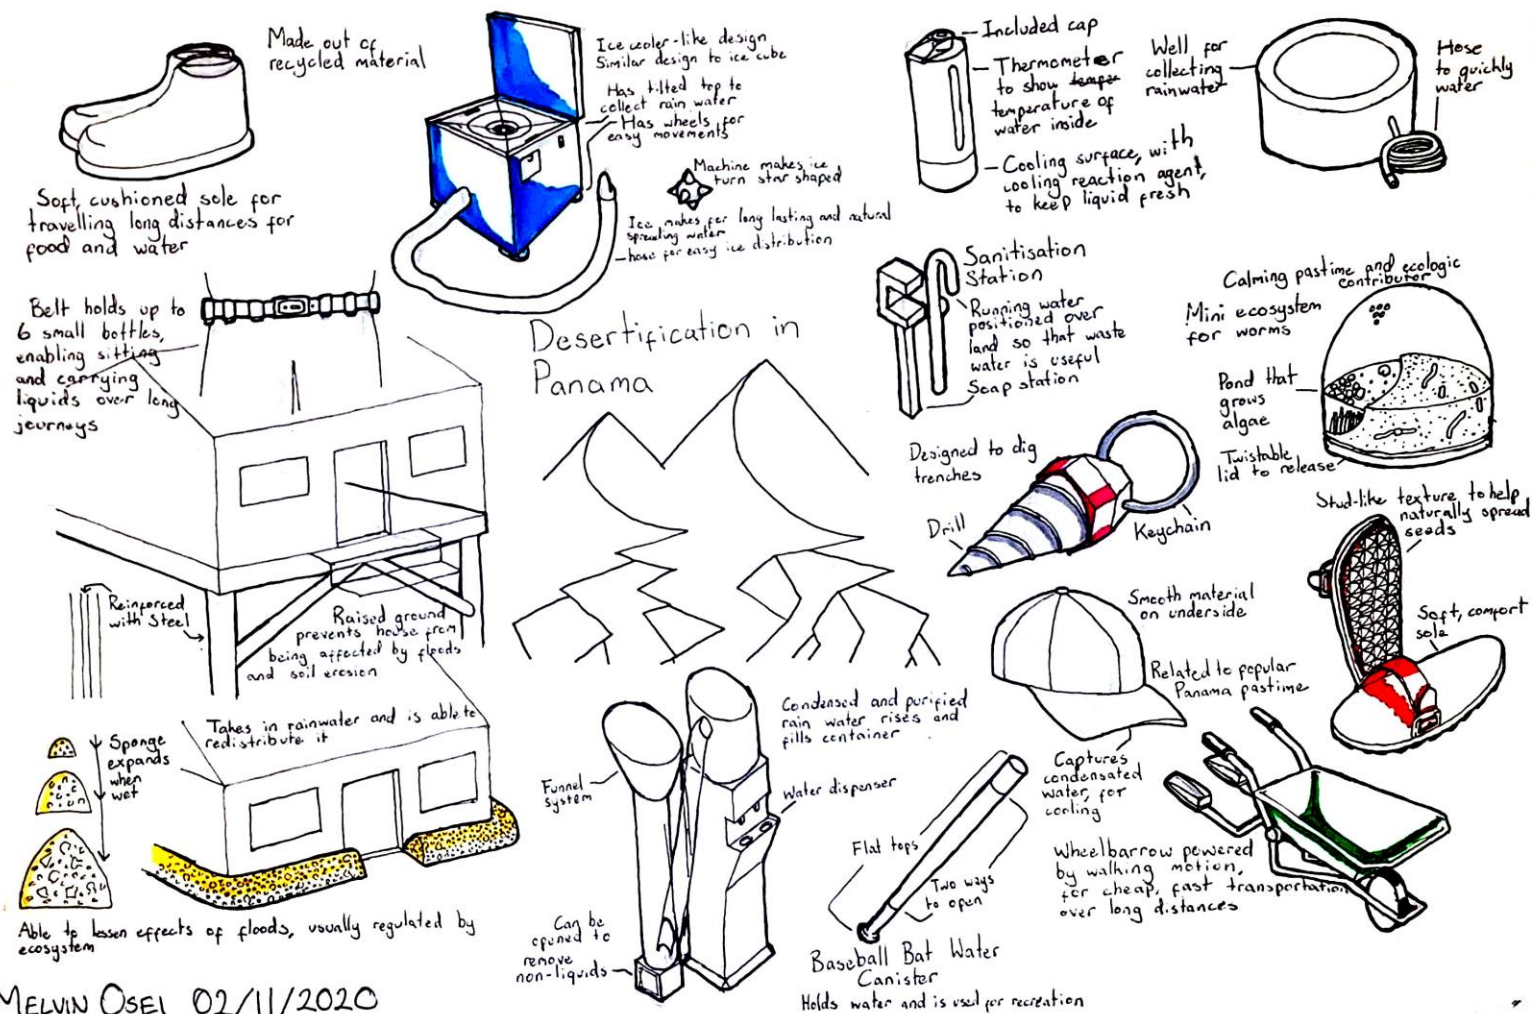 Made out of
recycled material
Soft, cushioned sole for
travelling long distances for
food and water
Ice cooler-like design
Similar design to ice cube
Has tilted top to
collect rain water
Has wheels for
easy movements
Machine makes ice
turn star shaped
Ice makes for long lasting and natural
spreading water
hose for easy ice distribution
Included cap
Thermometer
to show temper
temperature of
water inside
Cooling surface, with
cooling reaction agent,
to keep liquid fresh
Well for
collecting
rainwater
Hose
to quickly
water
Belt holds up to
6 small bottles,
enabling sitting
and carrying
liquids over long
journeys
Desertification in
Panama
Sanitisation
Station
Running water
positioned over
land so that waste
water is useful
Soap station
Calming pastime and ecologic
contributor
Mini ecosystem
for worms
Pond that
grows
algae
Twistable
lid to release
Designed to dig
trenches
Drill
Keychain
Stud-like texture to help
naturally spread
seeds
Soft, comfort
sole
Reinforced
with Steel
Raised ground
prevents house from
being affected by floods
and soil erosion
Smooth material
on underside
Related to popular
Panama pastime
Captures
condensated
water, for
cooling
Takes in rainwater and is able to
redistribute it
Sponge
expands
when
wet
Able to lessen effects of floods, usually regulated by
ecosystem
Funnel
system
Condensed and purified
rain water rises and
fills container
Water dispenser
Can be
opened to
remove
non-liquids
Flat tops
Two ways
to open
Baseball Bat Water
Canister
Holds water and is used for recreation
Wheelbarrow powered
by walking motion,
for cheap, fast transportation
over long distances
MELVIN OSEI 02/11/2020